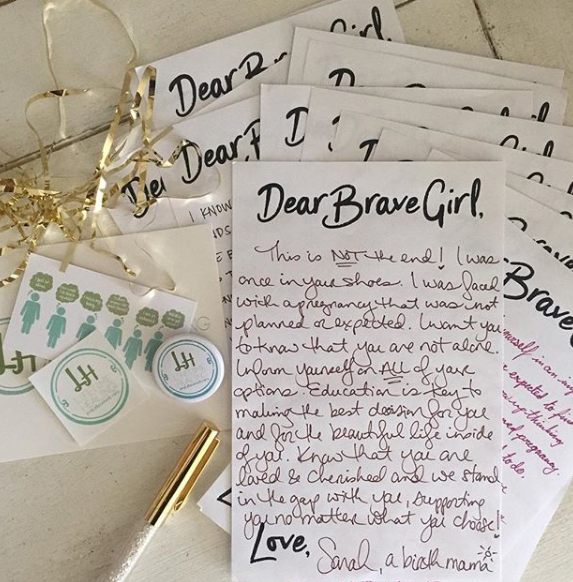 Dear B
Dear B
De
I KNOW
Dear Brave Girl,
This is NOT the end! I was
once in your shoes. I was faced
with a pregnancy that was not
planned or expected. I want you
to know that you are not alone.
Inform yourself on ALL of your
options. Education is key to
making the best decision for you
and for the beautiful life inside
of you. Know that you are
loved & cherished and we stand
in the gap with you, supporting
you no matter what you choose!
Love, Sarah, a birth mama
Brave G
myself in an
expected to
thinking
pregnancy.
to do.
LH
LH